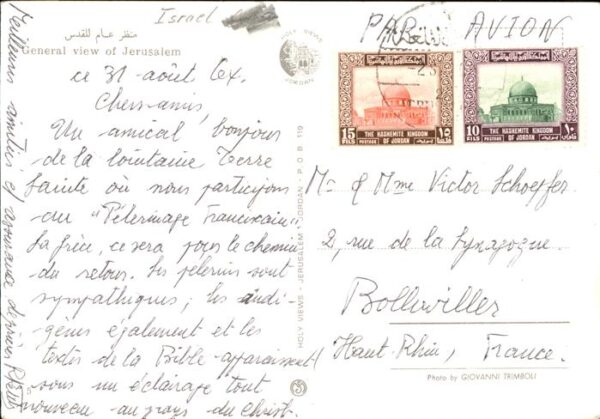 Israel
منظر عام للقدس
General view of Jerusalem
ce 31 août 64.
Chers amis,
Un amical bonjour
de la lointaine Terre
Sainte où nous participons
au "Pèlerinage Franciscain".
La frère, ce sera pour le chemin
du retour. Les pèlerins sont
sympathiques; les indi-
gènes également et les
textes de la Bible apparaissent
sous un éclairage tout
nouveau au pays du Christ.
Meilleures amitiés et assurance de prières
HOLY VIEWS
JORDAN
HOLY VIEWS - JERUSALEM - JORDAN - P.O.B 119
PAR AVION
15
FILS
THE HASHEMITE KINGDOM
OF JORDAN
POSTAGE
١٥
فلسا
10
FILS
THE HASHEMITE KINGDOM
OF JORDAN
POSTAGE
١٠
Mr & Mme Victor Schoeffer
2, rue de la Synagogue
Bollwiller
Haut-Rhin, France.
Photo by GIOVANNI TRIMBOLI